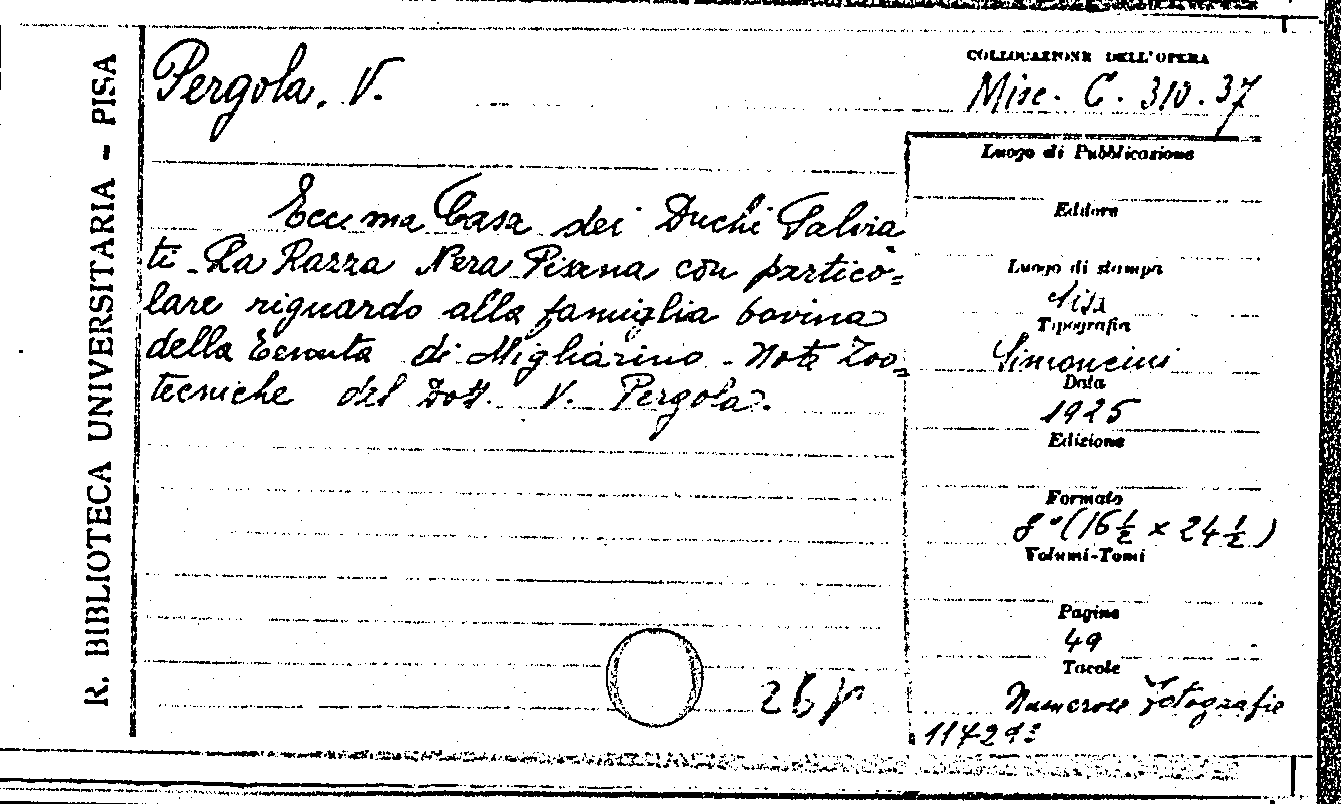 R. BIBLIOTECA UNIVERSITARIA - PISA
Pergola, V.
COLLOCAZIONE DELL'OPERA
Misc. C. 310.37
Ecc.ma Casa dei Duchi Salvia
ti - La Razza Nera Pisana con partico=
lare riguardo alla famiglia bovina
della Tenuta di Migliarino - Note Zoo=
tecniche del Dott. V. Pergola.
Luogo di Pubblicazione
Editore
Luogo di stampa
Pisa
Tipografia
Simoncini
Data
1925
Edizione
Formato
8° (16 ½ x 24 ½)
Volumi-Tomi
Pagine
49
Tavole
Numerose fotografie